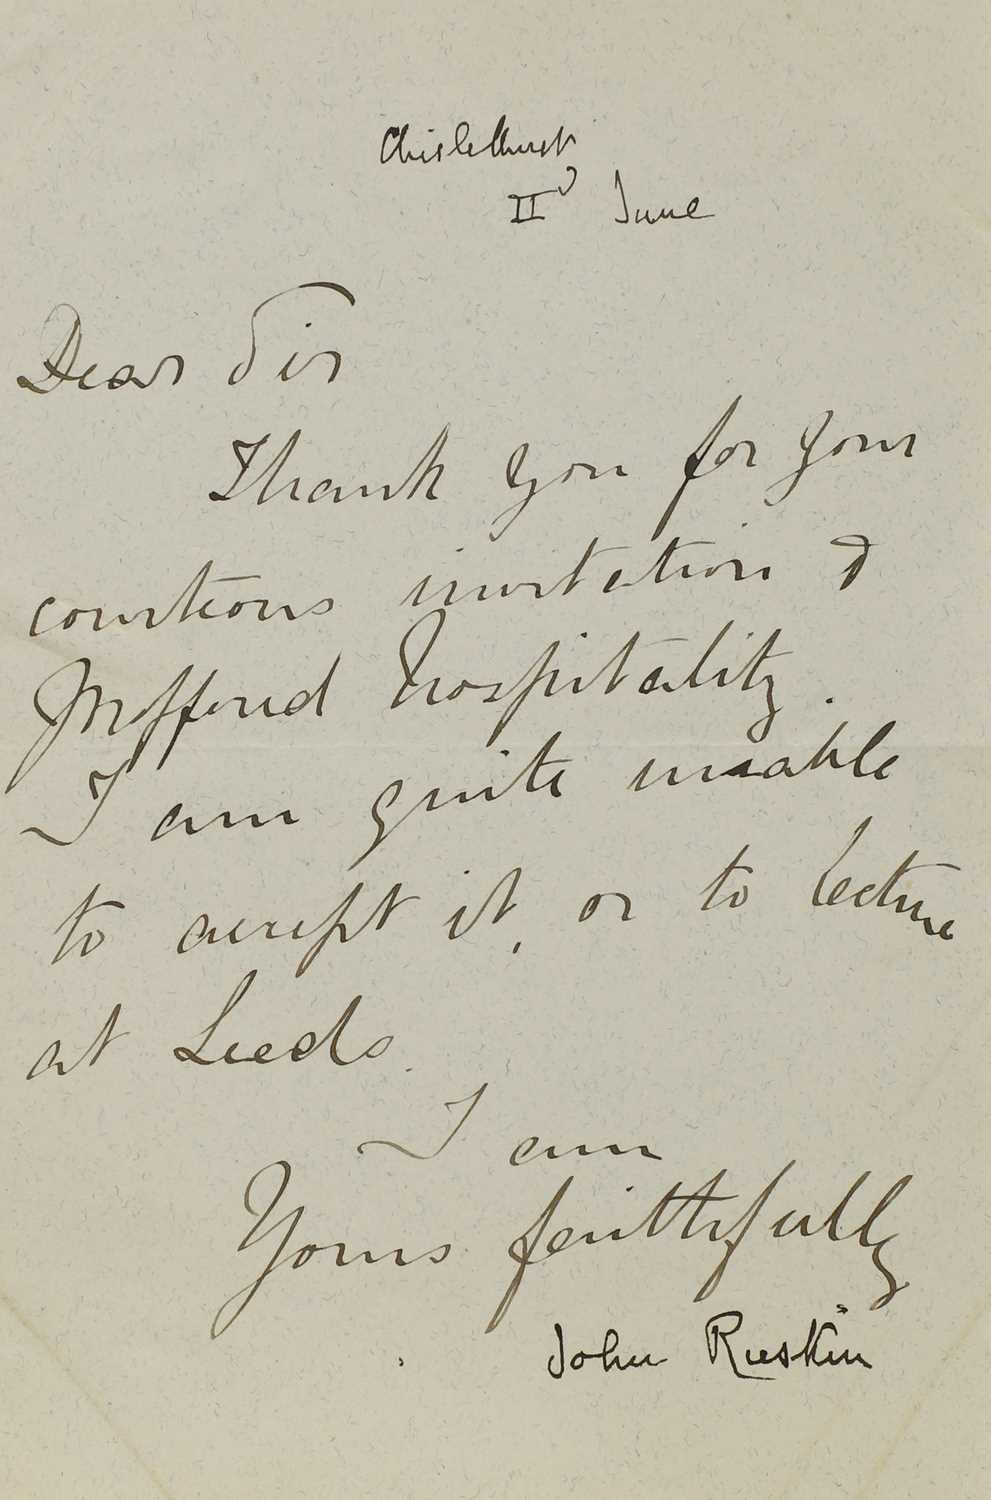 Chislehurst
IId June
Dear Sir
Thank you for your
courteous invitation &
proffered hospitality.
I am quite unable
to accept it, or to lecture
at Leeds.
I am
Yours faithfully
John Ruskin